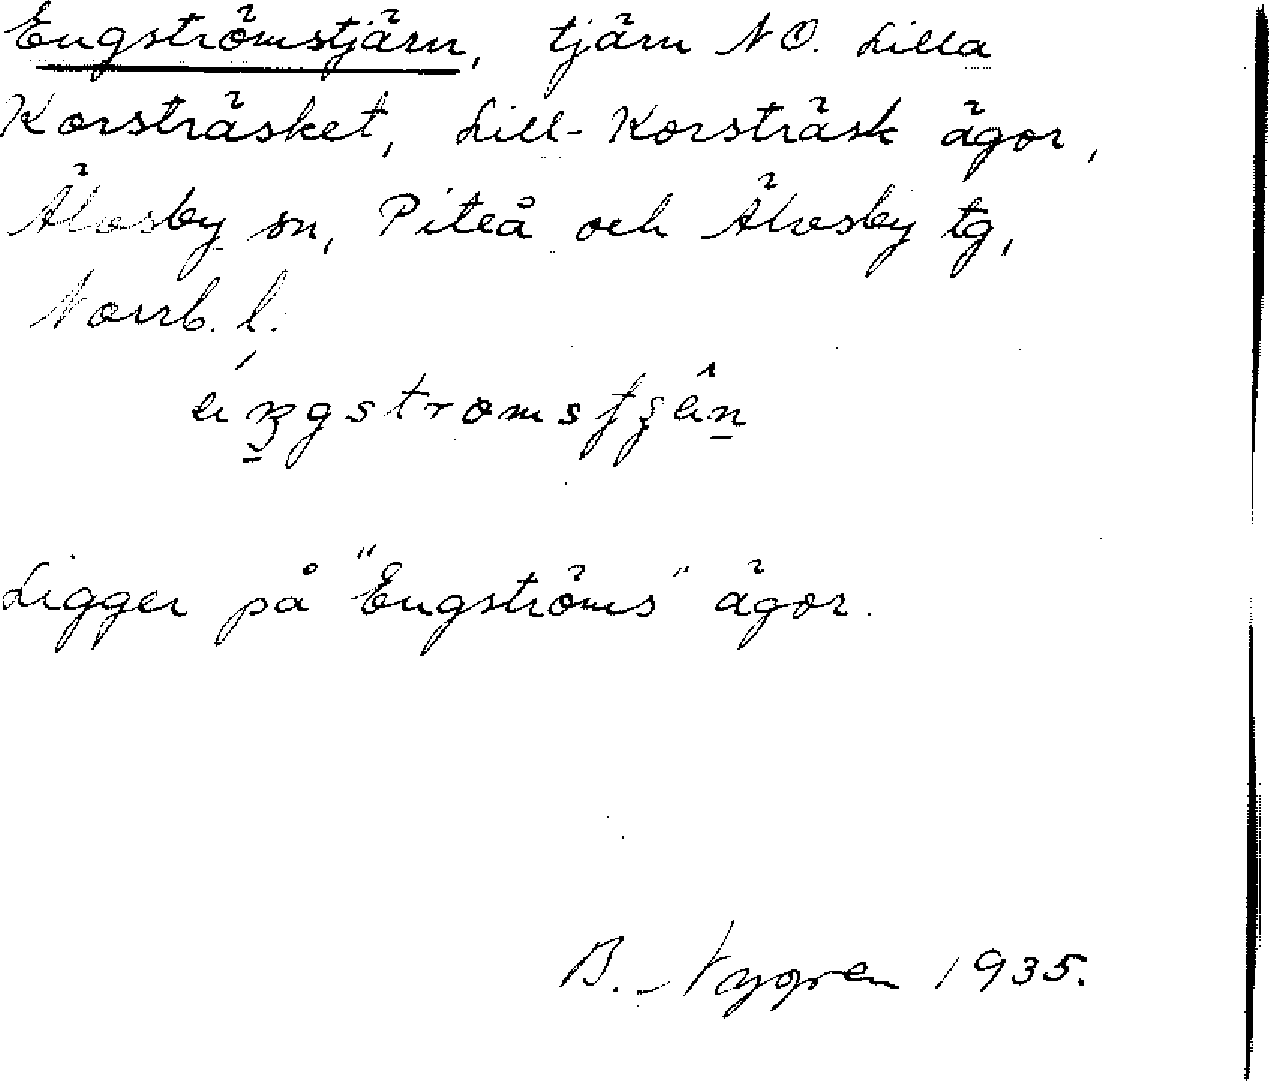 Engströmstjärn, tjärn NO. Lilla
Korsträsket, Lill-Korsträsk ägor,
Älvsby sn, Piteå och Älvsby tg,
Norrb. l.
Ligger på "Engströms" ägor.
B. Nygren 1935.